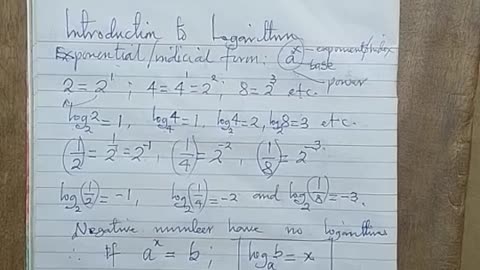 Introduction to Logarithm
Exponential/indicial form: aˣ - exponent/index
base
power
2 = 2¹ ; 4 = 4¹ = 2² ; 8 = 2³ etc.
log₂2 = 1, log₄4 = 1, log₂4 = 2, log₂8 = 3 etc.
(1/2) = 1/2¹ = 2⁻¹, (1/4) = 2⁻², (1/8) = 2⁻³.
log₂(1/2) = -1, log₂(1/4) = -2 and log₂(1/8) = -3.
Negative number have no logarithms
∴ If aˣ = b ; logₐb = x